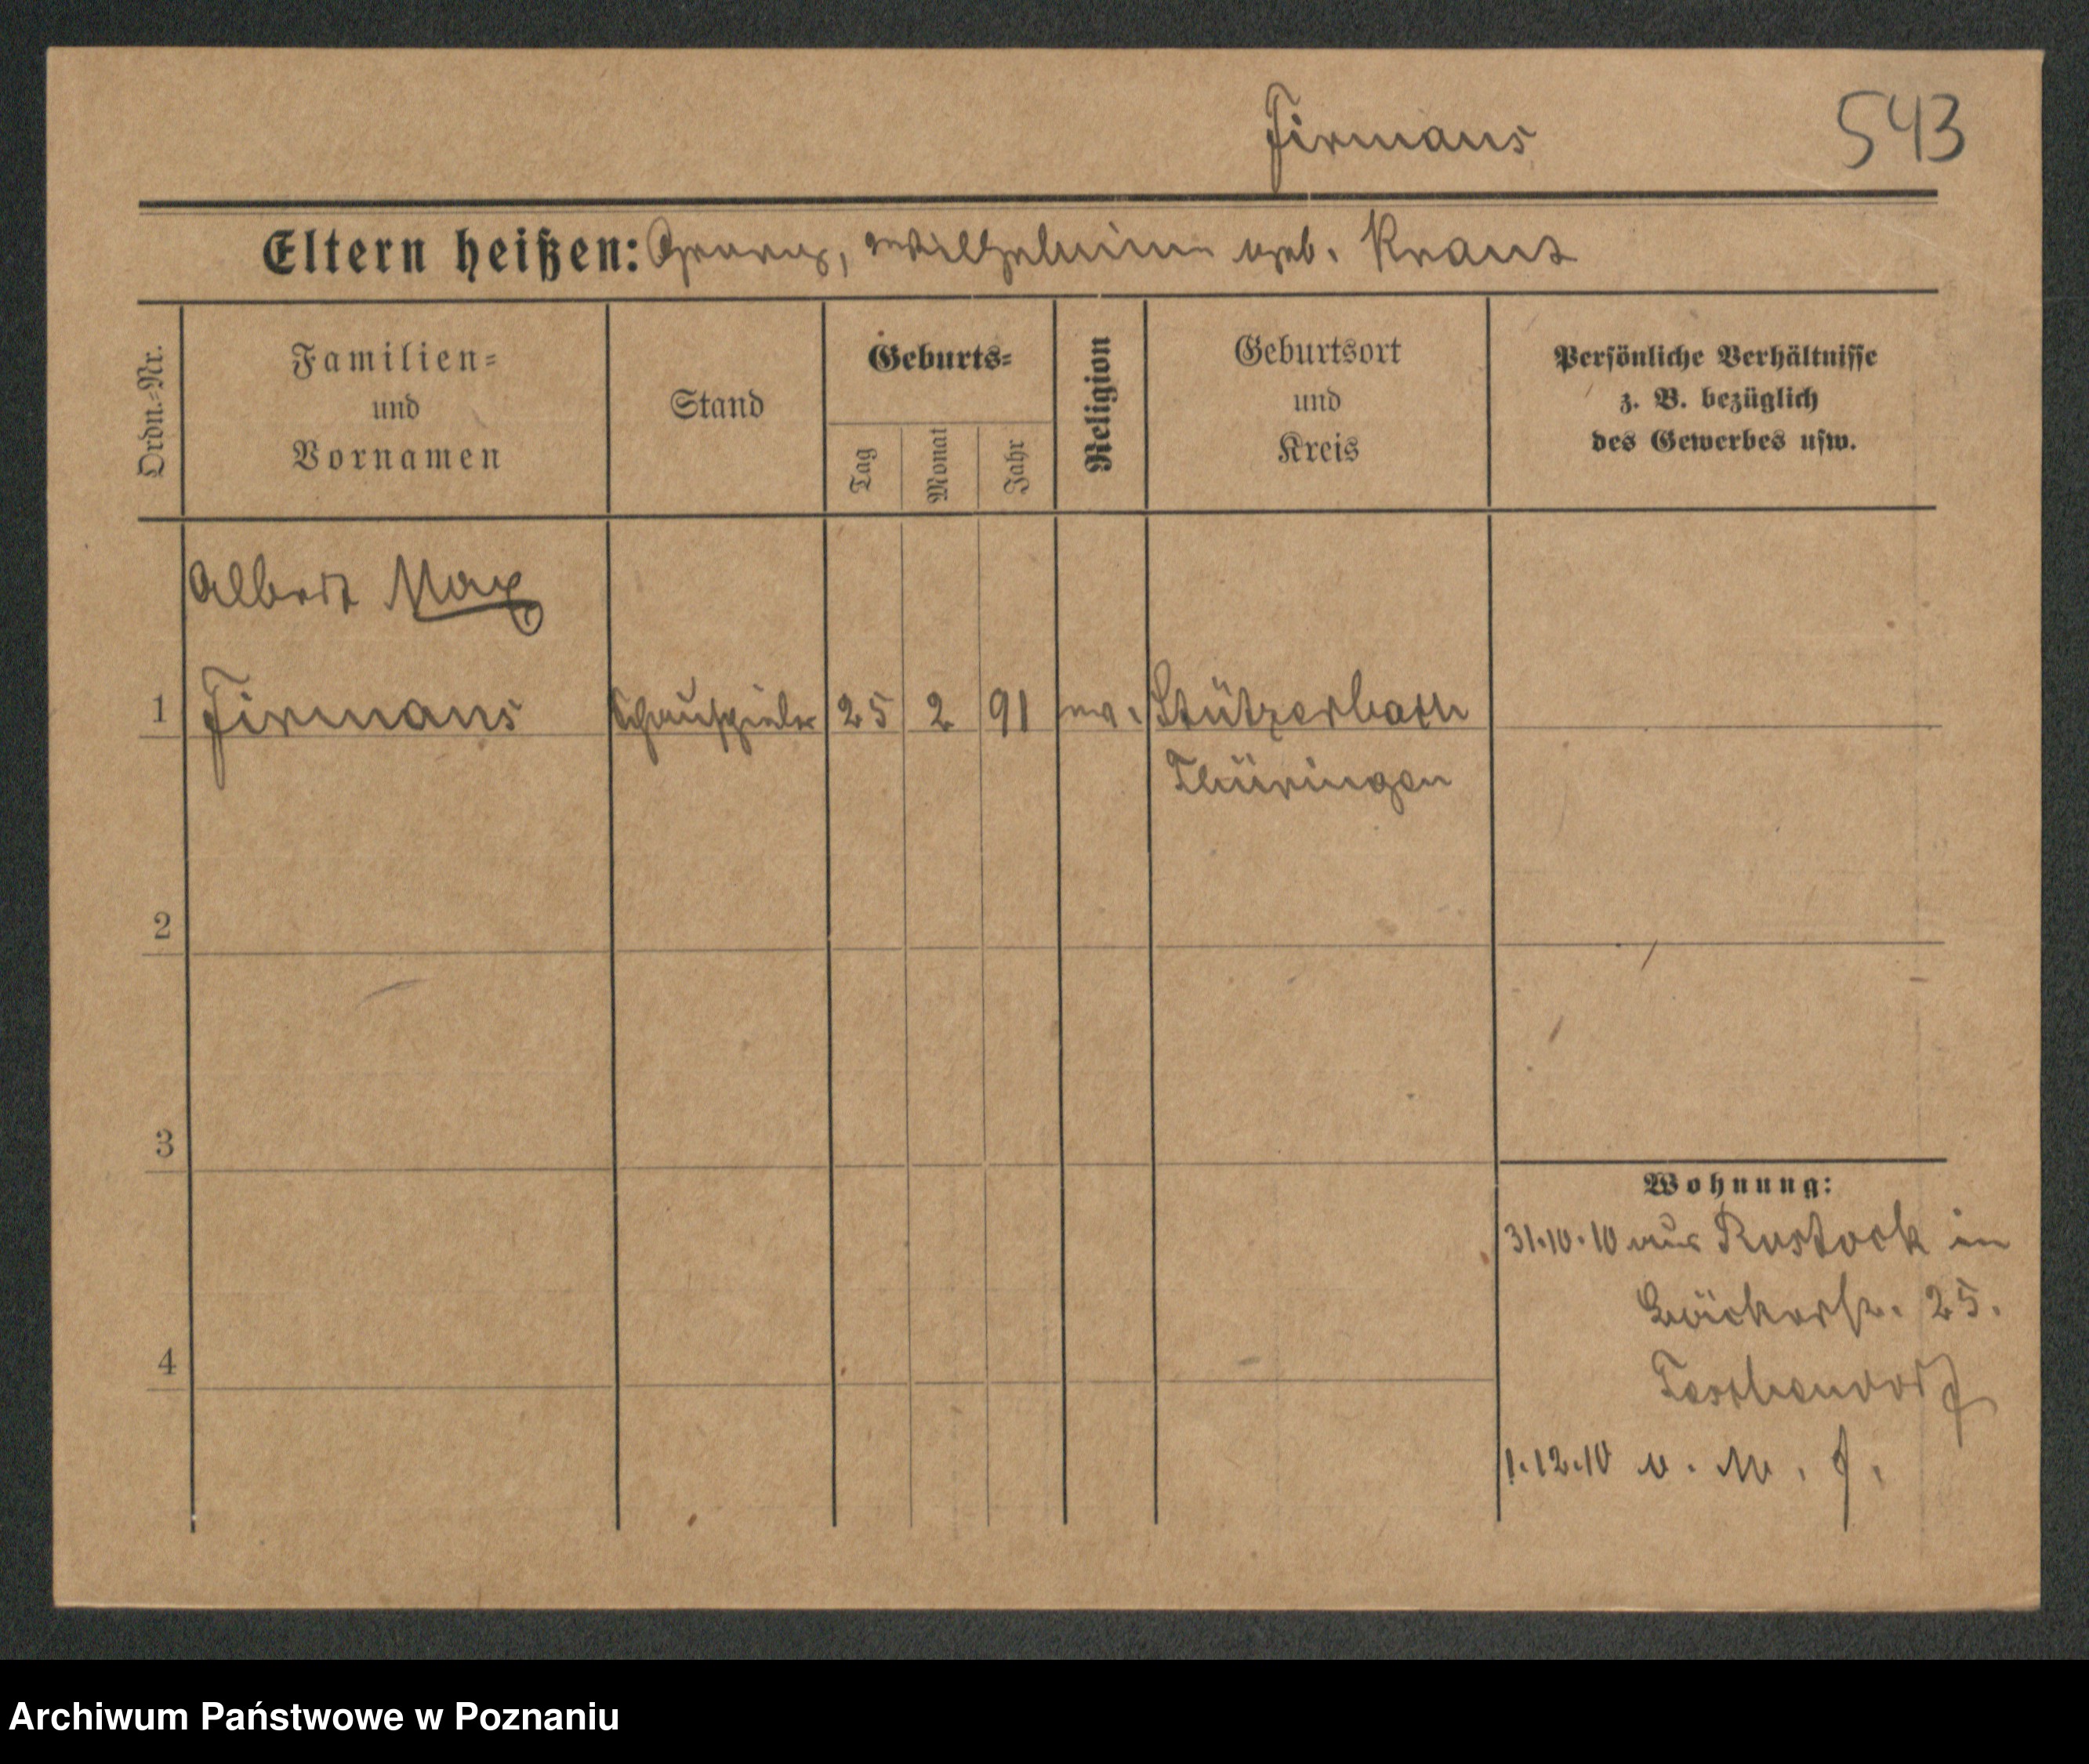 Firmans 543
Eltern heißen: Georg, Wilhelmine geb. Kranz
Ordn.-Nr.
Familien-
und
Vornamen
Stand
Geburts-
Tag
Monat
Jahr
Religion
Geburtsort
und
Kreis
Persönliche Verhältnisse
z. B. bezüglich
des Gewerbes usw.
Albert Max
1 Firmans Schauspieler 25 2 91 ev. Stützerbach
Thüringen
2
3
Wohnung:
31.10.10 aus Rostock in
Bäckerstr. 25.
4
1.12.10
Archiwum Państwowe w Poznaniu